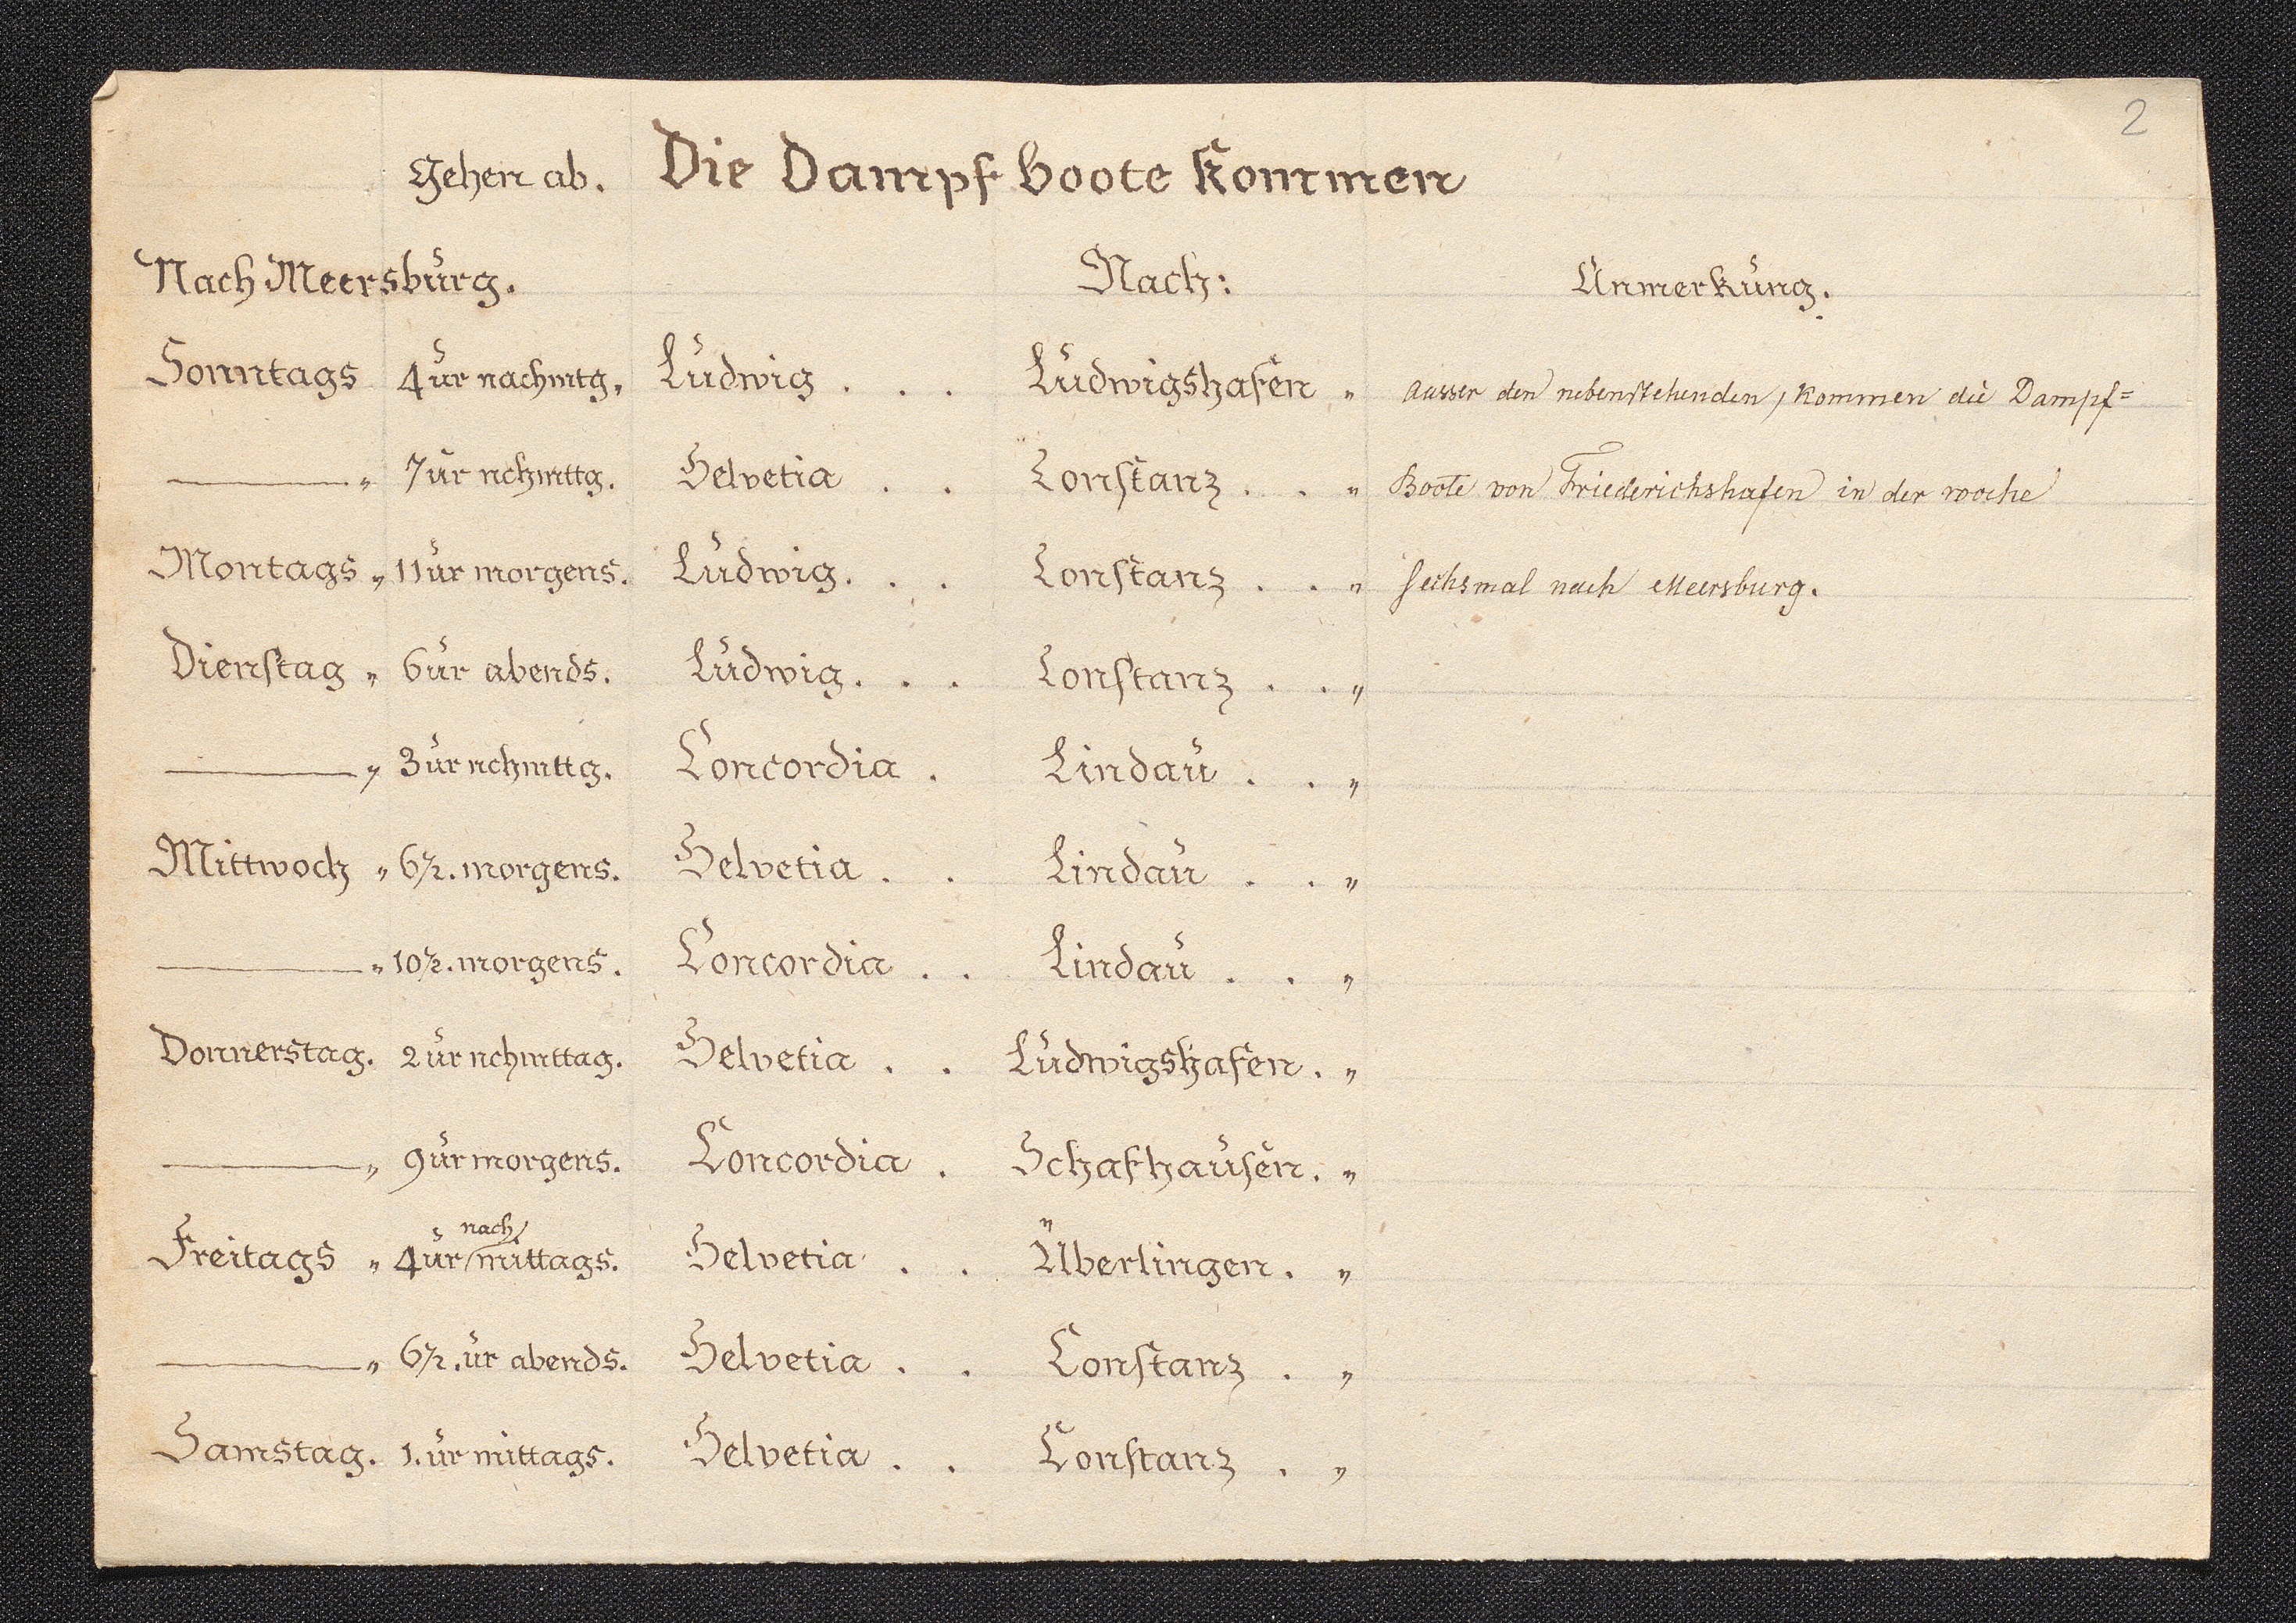 2
Gehen ab. Die Dampf boote kommen
Nach Meersburg. Nach: Anmerkung.
Sonntags 4 ur nachmtg. Ludwig . . . Ludwigshafen " ausser den nebenstehenden, kommen die Dampf=
——— " 7 ur nchmttg. Helvetia . . Constanz . . " Boote von Friederichshafen in der woche
Montags " 11 ur morgens. Ludwig. . . Constanz . . " sechsmal nach Meersburg.
Dienstag " 6 ur abends. Ludwig. . . Constanz . . "
——— " 3 ur nchmttg. Concordia . Lindau . . "
Mittwoch " 6 1/2. morgens. Helvetia . . Lindau . . "
——— " 10 1/2. morgens. Concordia . . Lindau . . "
Donnerstag. 2 ur nchmttag. Helvetia . . Ludwigshafen . "
——— " 9 ur morgens. Concordia . Schafhausen . "
Freitags " 4 ur nach mittags. Helvetia . . Überlingen . "
——— " 6 1/2. ur abends. Helvetia . . Constanz . "
Samstag. 1. ur mittags. Helvetia . . Constanz . "